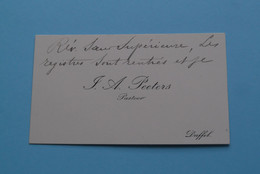 Rév. Sœur Supérieure, Les
registres sont rentrés et je
J. A. Peeters
Pastoor
Duffel